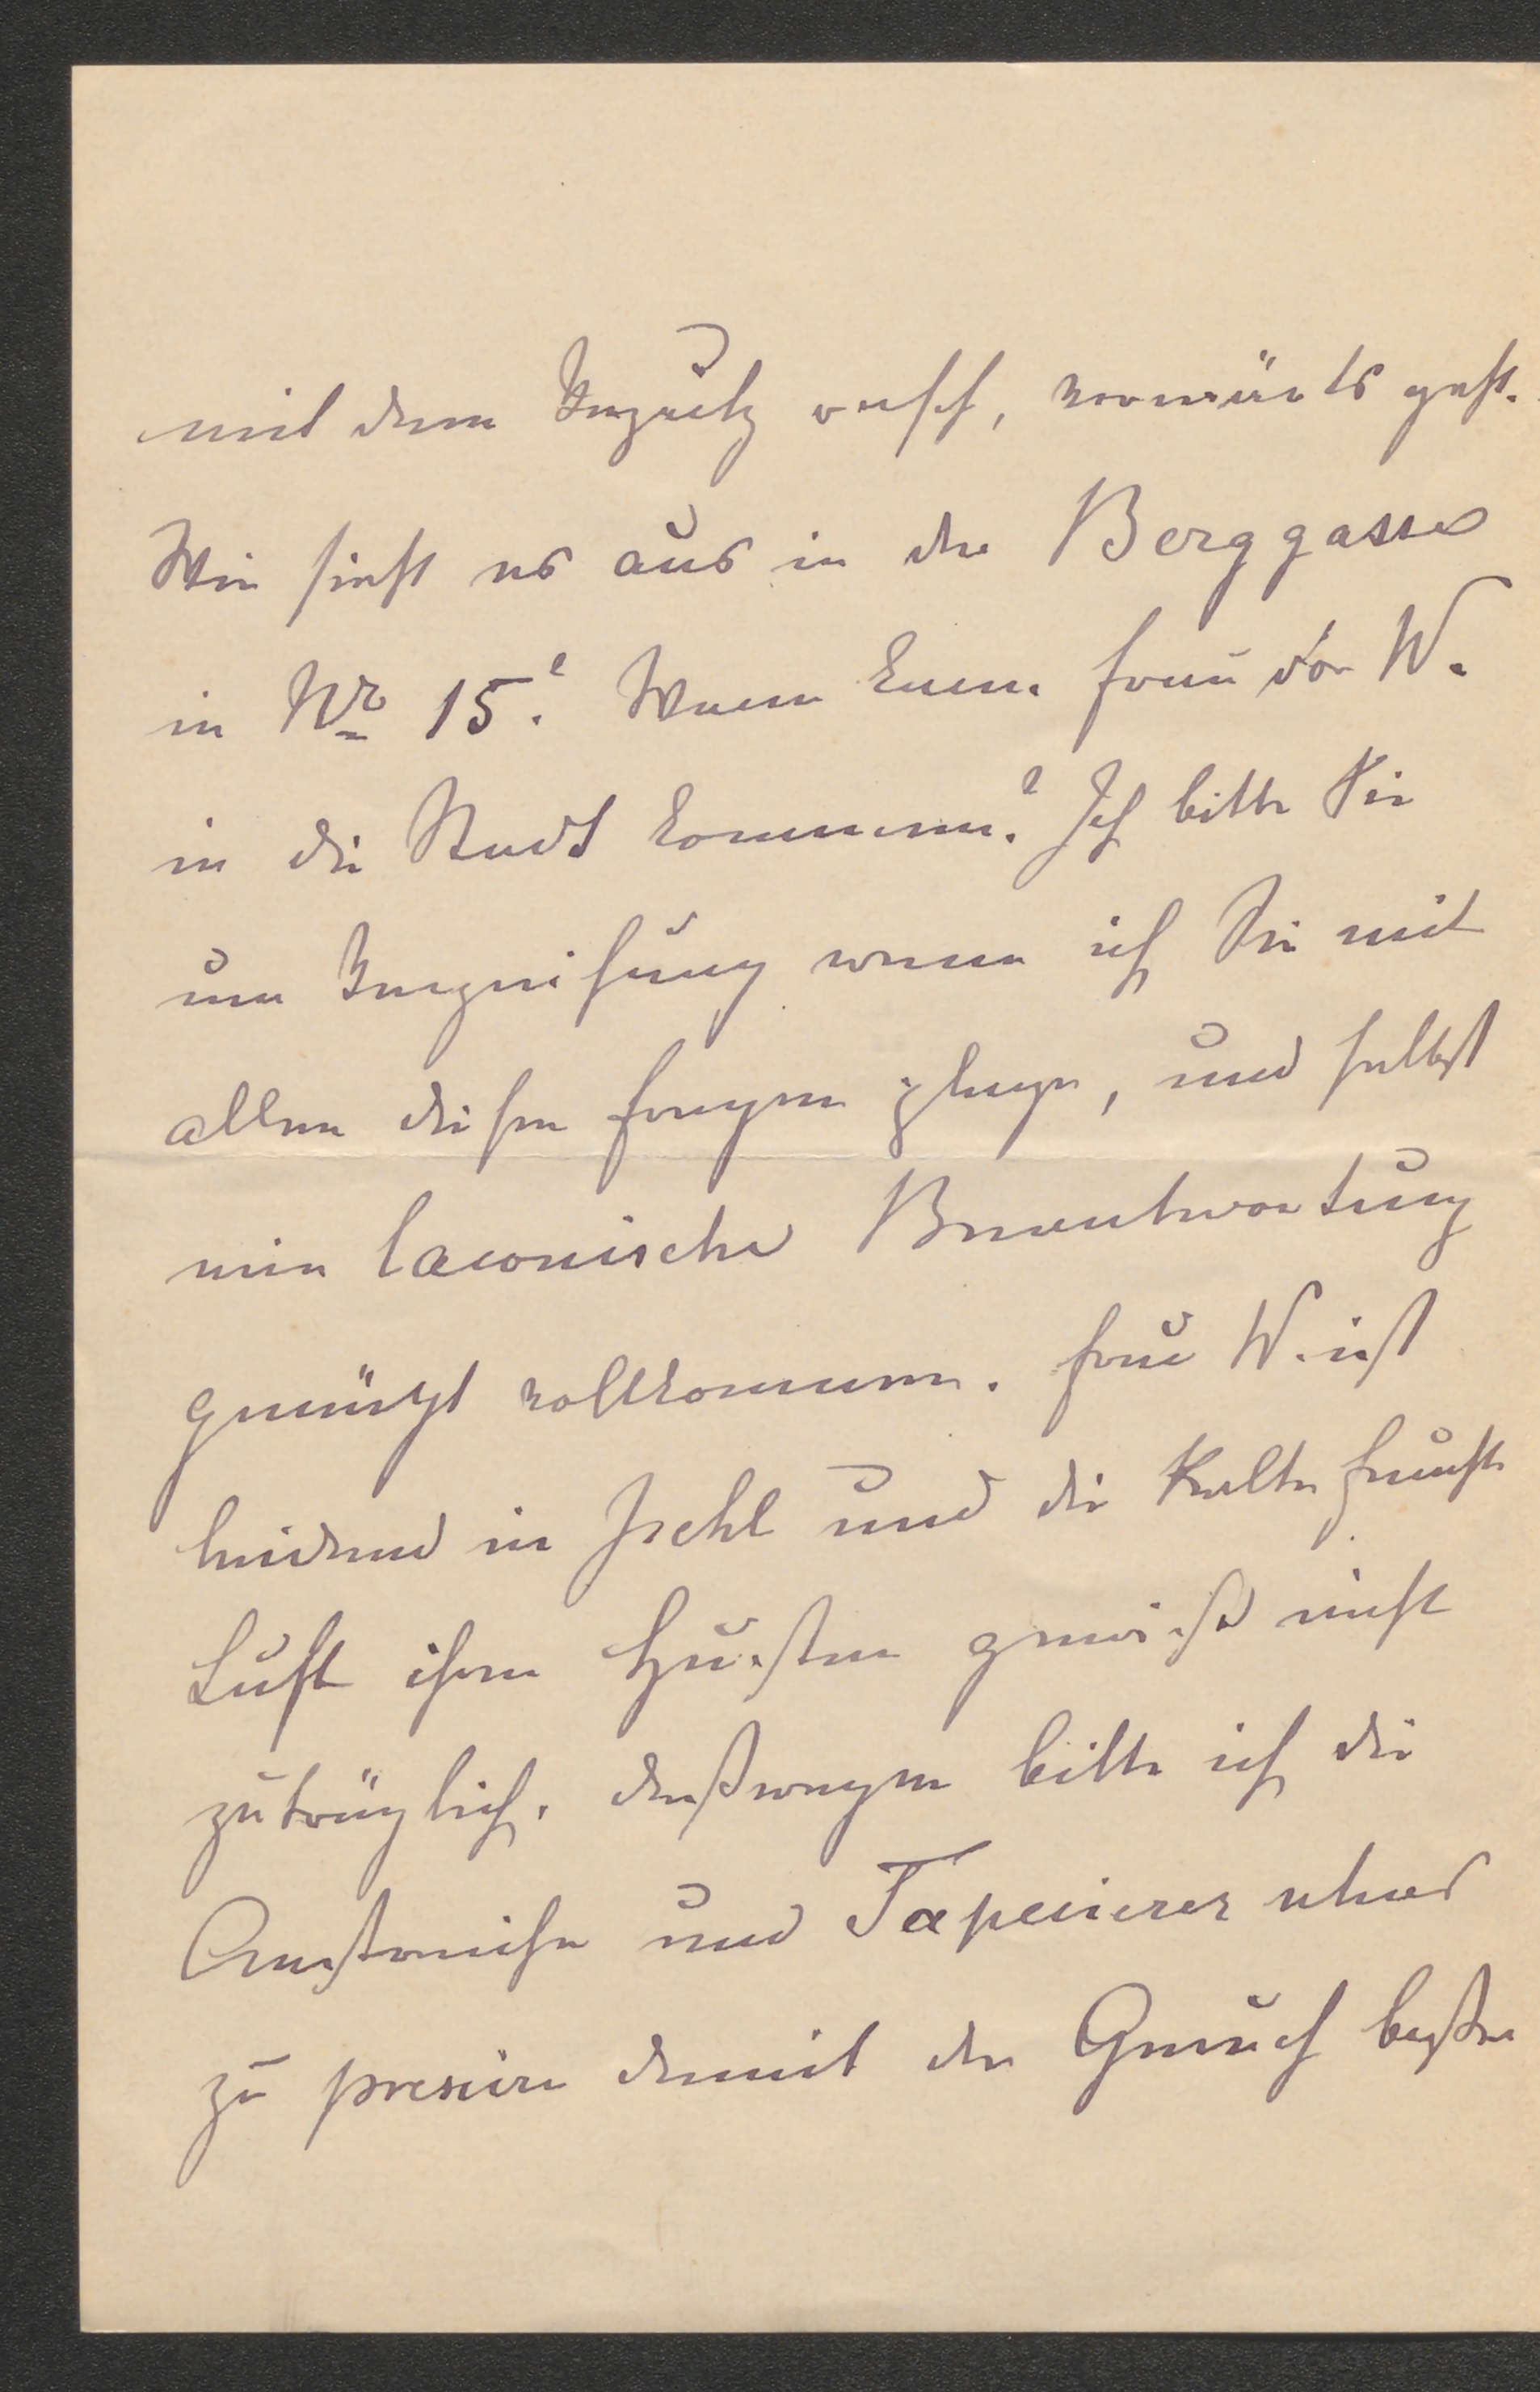 mit dem Verputz rasch, vorwärts geht.
Wie sieht es aus in der Berggasse
in Nr 15? Wann kann Frau von W.
in die Stadt kommen? Ich bitte Sie
um Verzeihung wenn ich Sie mit
allen diesen Fragen plage, und selbst
eine laconische Beantwortung
genügt vollkommen. Frau W. ist
leidend in Ischl und die kalte feuchte
Luft ihrem Husten gewiß nicht
zuträglich, deßwegen bitte ich die
Anstreicher und Tapezierer etwas
zu pressiren damit der Geruch besser